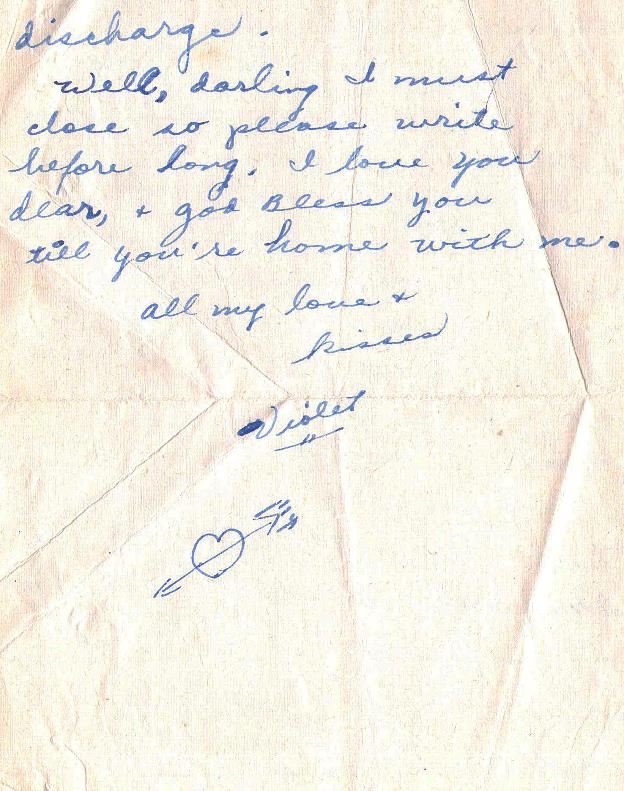 discharge.
Well, darling I must
close so please write
before long. I love you
dear, + god Bless you
till you're home with me.
all my love +
kisses
Violet